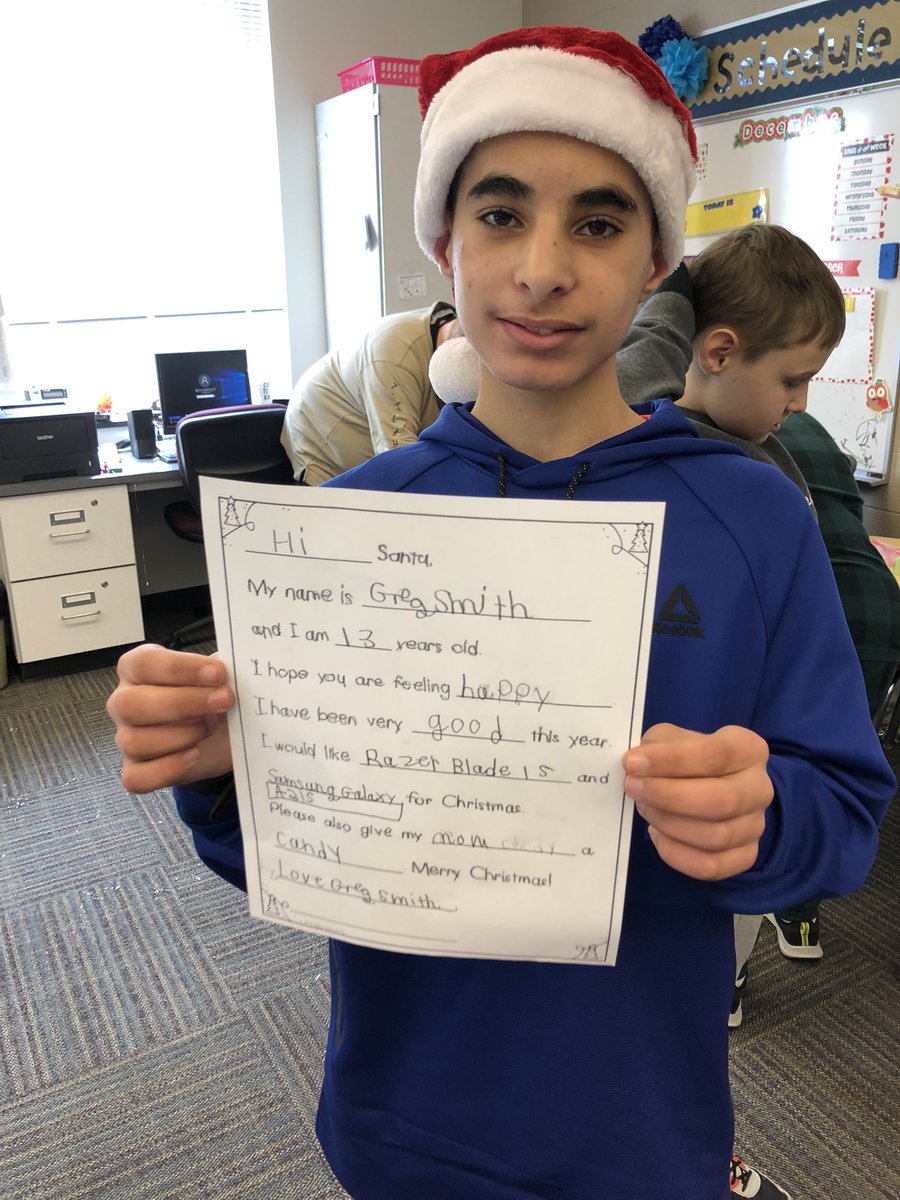 Schedule
December
DAYS of the WEEK
SUNDAY
MONDAY
TUESDAY
WEDNESDAY
THURSDAY
FRIDAY
SATURDAY
TODAY IS
brother
Reebok
Hi Santa,
My name is Greg Smith
and I am 13 years old.
I hope you are feeling happy
I have been very good this year.
I would like Razer Blade 15 and
Samsung Galaxy
A21s for Christmas.
Please also give my mom candy a
candy Merry Christmas!
Love Greg Smith